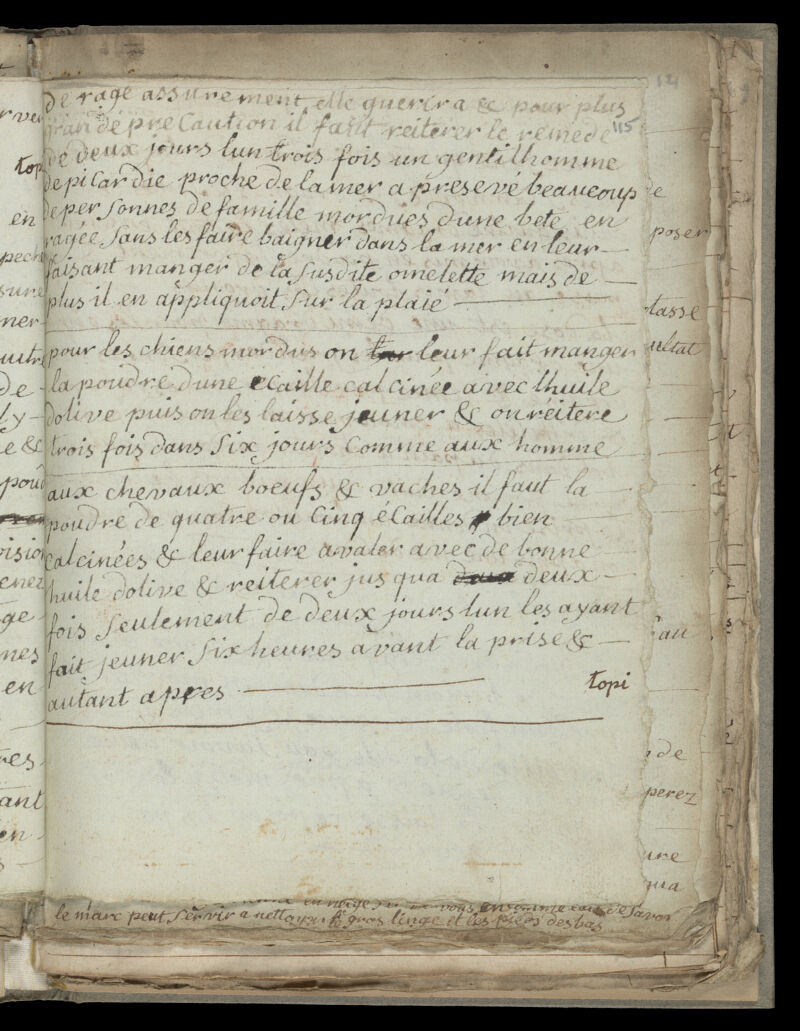 de rage assurement elle guerira & pour plus
grande preCaution il faut reiterer le remede
115
de deux jours lun trois fois un gentilhomme
de picardie proche de la mer a presevé beaucoup
de personnes de famille mordues dune bete en
ragée sans les faire baigner dans la mer en leur
faisant manger de la susdite omelette mais de
plus il en appliquoit sur la plaie
pour les chiens mordus on leur fait manger
la poudre dune ecaille calcinée avec lhuile
dolive puis on les laisse jeuner & on reitere
trois fois dans six jours comme aux homme
aux chevaux boeufs & vaches il faut la
poudre de quatre ou cinq écailles bien
calcinées & leur faire avaler avec de bonne
huile dolive & reiterer jusqua deux
fois seulement de deux jours lun les ayant
fait jeuner six heures avant la prise &
autant apres
topi
le marc peut servir a nettoyer le gros linge et les pieds des bas
topi
en
peche
sure
ner
de
ly
e &
ge
nes
en
res
ant
en
de
poser
tasse
ultat
eau
de
perez
une
qua